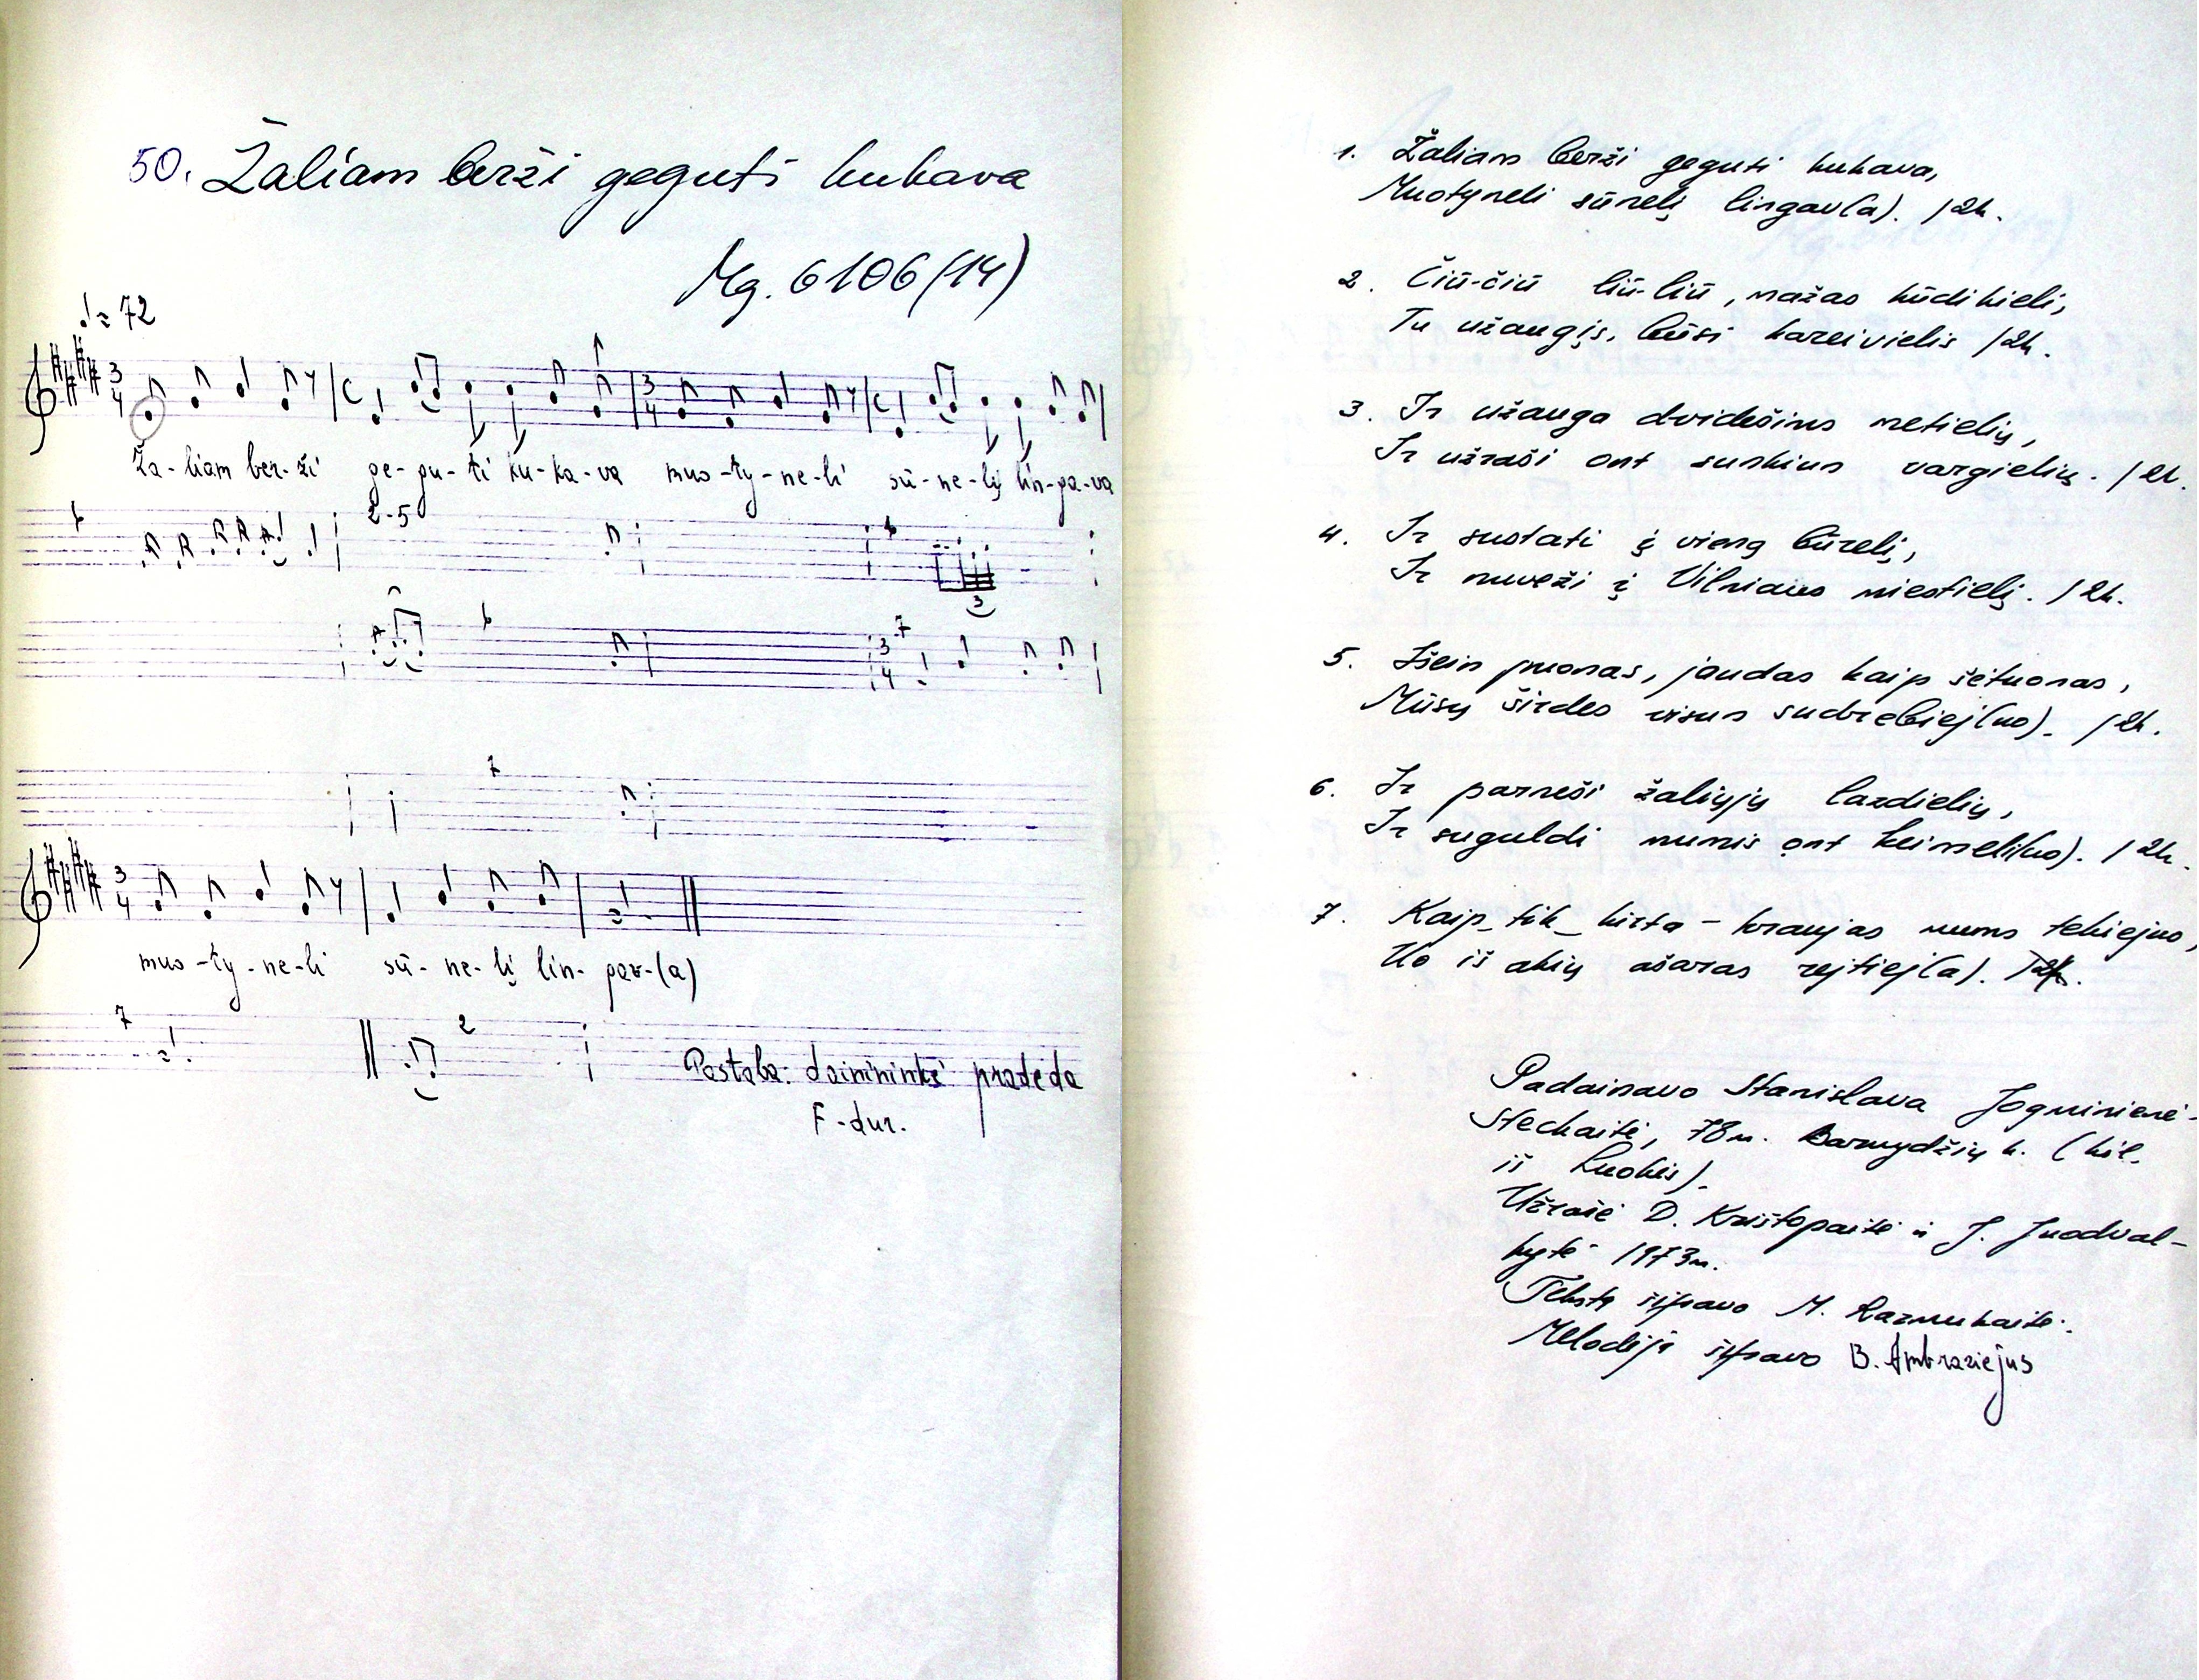 50. Žaliam berži geguti kukava
Mg. 6106 (14)
♩= 72
3/4
Ža - liam ber - ži ge - gu - ti ku - ka - va muo - ty - ne - li sū - ne - lį lin - ga - va
6 2-5 6
3
6 7
3/4
7
3/4
muo - ty - ne - li sū - ne - lį lin - gav - (a)
7 2
Pastaba: dainininkė pradeda
F-dur.
1. Žaliam berži geguti kukava,
Muotyneli sūnelį lingav(a). /2k.
2. Čiū-čiū liū-liū, mažas kūdikieli,
Tu užaugįs, būsi kareivielis /2k.
3. Ir užauga dvidešims metielių,
Ir užraši ont sunkius vargielių. /2k.
4. Ir sustati į vieną būrelį,
Ir nuveži į Vilniaus miestielį. /2k.
5. Išein puonas, jaudas kaip šėtuonas,
Mūsų širdes visus sudrebiej(uo). /2k.
6. Ir parneši žaliųjų lazdielių,
Ir suguldi mumis ont keimeli(uo). /2k.
7. Kaip tik kirta - kraujas mums tekiejuo,
Uo iš akių ašaras rejtiej(a).
Padainavo Stanislava Joguinienė-
Stechaitė, 78 m. k. (kil.
iš Luokės).
Užrašė D. Krištopaitė ir J. Juodval-
kytė 1973 m.
Tekstą šifravo M. Razmukaitė.
Melodiją šifravo B. Ambraziejus